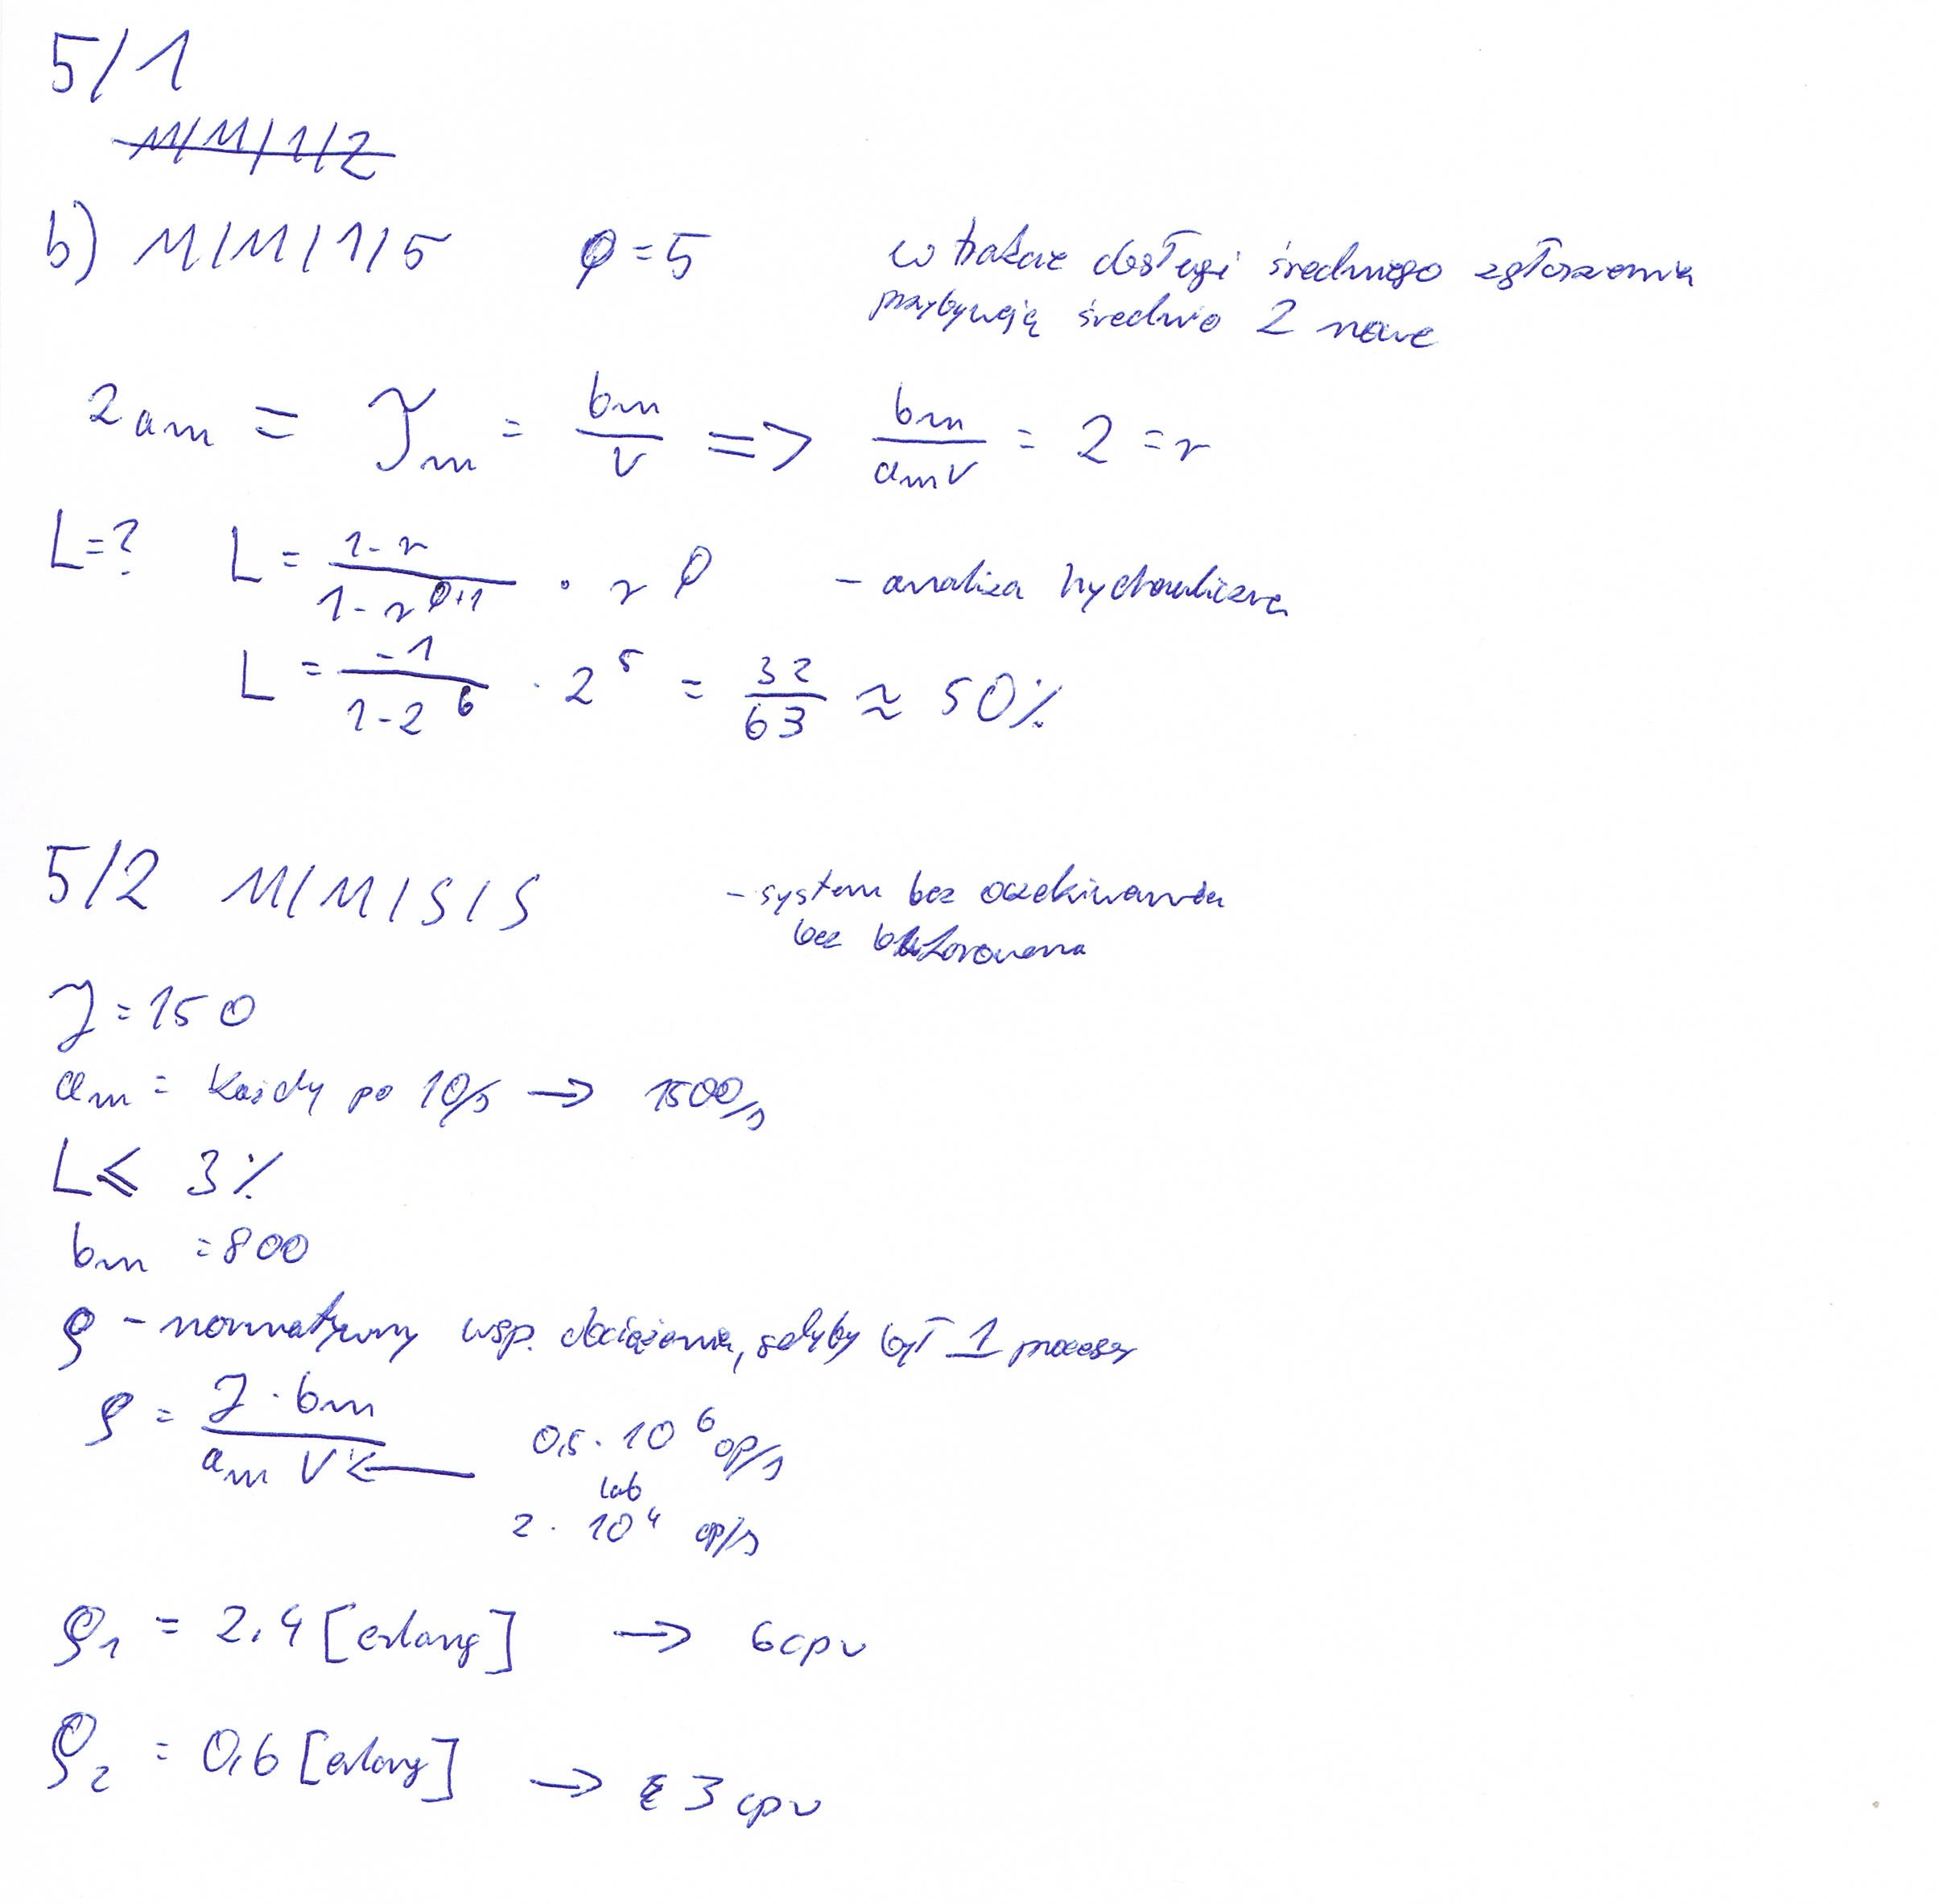 5/1
M/M/1/2
b) M/M/1/5 Q = 5 w trakcie obsługi średniego zgłoszenia
przybywają średnio 2 nowe
2 am = τm = bm / v => bm / am v = 2 = r
L = ? L = (1 - r) / (1 - r^(Q+1)) · r^Q - analiza hydrauliczna
L = -1 / (1 - 2^6) · 2^5 = 32 / 63 ≈ 50%
5/2 M/M/S/S - system bez oczekiwania
bez buforowania
J = 150
am = każdy po 10/s → 1500/s
L ≤ 3%
bm = 800
ρ - normatywny wsp. obciążenia, gdyby był 1 procesor
ρ = J · bm / am V ← 0,5 · 10^6 op/s
lub
2 · 10^4 op/s
ρ1 = 2.4 [erlang] → 6 cpu
ρ2 = 0,6 [erlang] → 3 cpu